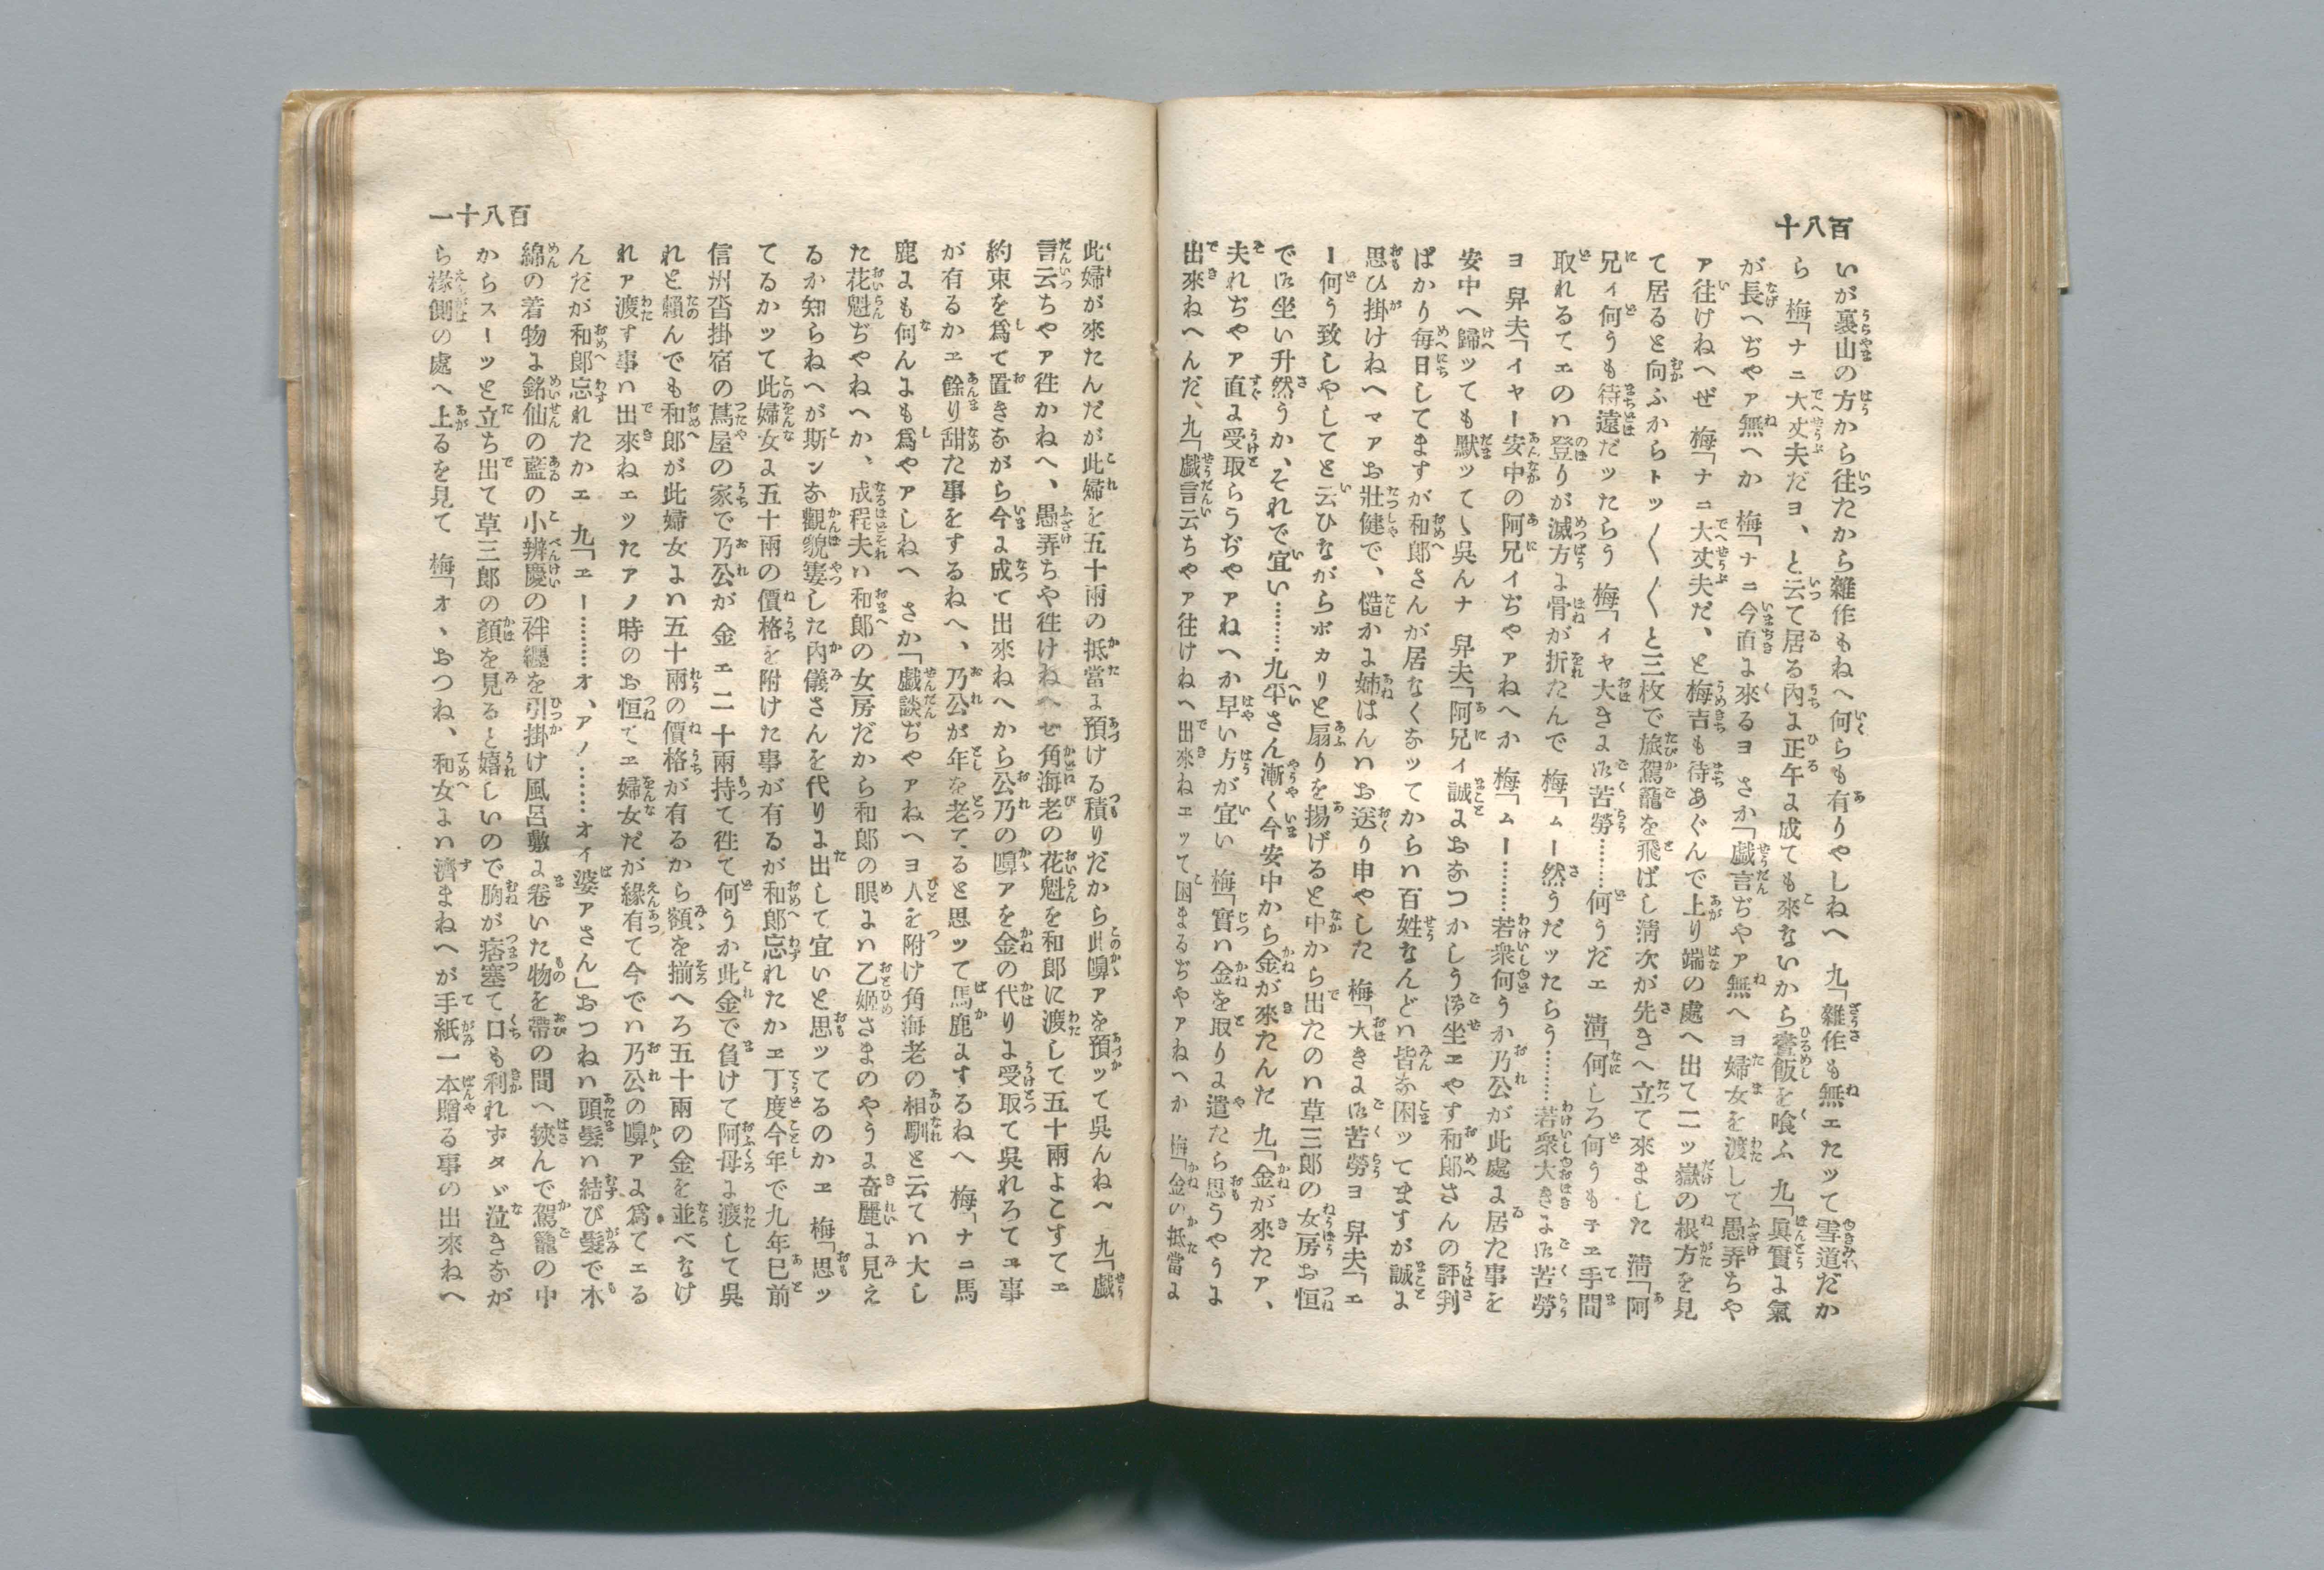 百八十
いが裏山の方から往たから雜作もねへ何らも有りやしねへ　九「雜作も無エたッて雪道だか
ら　梅「ナニ大丈夫だヨ、と云て居る內に正午に成ても來ないから晝飯を喰ふ　九「眞實に氣
が長へぢやァ無へか　梅「ナニ今直に來るヨ　さか「戯言ぢやァ無へヨ婦女を渡して愚弄ちや
ァ往けねへぜ　梅「ナニ大丈夫だ、と梅吉も待あぐんで上り端の處へ出て二ッ嶽の根方を見
て居ると向ふからトッ〱〱と三枚で旅駕籠を飛ばし淸次が先きへ立て來ました　淸「阿
兄ィ何うも待遠だッたらう　梅「イヤ大きに御苦勞………何うだエ　淸「何しろ何うもヱヱ手間
取れるてエのハ登りが滅方に骨が折たんで　梅「ムー然うだッたらう………若衆大きに御苦勞
ヨ　舁夫「イヤー安中の阿兄イぢやァねへか　梅「ムー………若衆何うか乃公が此處に居た事を
安中へ歸ッても默ッてゝ吳んナ　舁夫「阿兄ィ誠におなつかしう御坐エやす和郎さんの評判
ばかり每日してますが和郎さんが居なくなッてからハ百姓なんどハ皆な困ッてますが誠に
思ひ掛けねへマァお壯健で、慥かに姉はんハお送り申やした　梅「大きに御苦勞ヨ　舁夫「エ
ー何う致しやしてと云ひながらポカリと扇りを揚げると中から出たのハ草三郎の女房お恒
で御坐い升然うか、それで宜い………九平さん漸く今安中から金が來たんだ　九「金が來たァ、
夫れぢやァ直に受取らうぢやァねへか早い方が宜い　梅「實ハ金を取りに遣たら思うやうに
出來ねへんだ、九「戯言云ちやァ往けねへ出來ねエッて困まるぢやァねへか　梅「金の抵當に
百八十一
此婦が來たんだが此婦を五十兩の抵當に預ける積りだから此嚊ァを預ッて吳んねへ　九「戯
言云ちやァ徃かねへ、愚弄ちや徃けねへせ角海老の花魁を和郎に渡して五十兩よこすてエ
約束を爲て置きながら今に成て出來ねへから公乃の嚊ァを金の代りに受取て吳れろてエ事
が有るかエ餘り甜た事をするねへ、乃公が年を老てると思ッて馬鹿にするねへ　梅「ナニ馬
鹿にも何んにも爲やァしねへ　さか「戯談ぢやァねへヨ人を附け角海老の相馴と云てハ大し
た花魁ぢやねへか、成程夫ハ和郎の女房だから和郎の眼にハ乙姬さまのやうに奇麗に見え
るか知らねへが斯ンな觀貌窶した內儀さんを代りに出して宜いと思ッてるのかエ　梅「思ッ
てるかッて此婦女に五十兩の價格を附けた事が有るが和郎忘れたかエ丁度今年で九年已前
信州沓掛宿の蔦屋の家で乃公が金エ二十兩持て徃て何うか此金で負けて阿母に渡して吳
れと賴んでも和郎が此婦女にハ五十兩の價格が有るから額を揃へろ五十兩の金を並べなけ
れァ渡す事ハ出來ねエッたァノ時のお恒てエ婦女だが緣有て今でハ乃公の嚊ァに爲てエる
んだが和郎忘れたかエ　九「エー………オ、アノ………オィ婆ァさん」おつねハ頭髮ハ結び髮で木
綿の着物に銘仙の藍の小辨慶の袢纒を引掛け風呂敷に卷いた物を帶の間へ挾んで駕籠の中
からスーッと立ち出て草三郎の顏を見ると嬉しいので胸が痞塞て口も利れずタヾ泣きなが
ら椽側の處へ上るを見て　梅「オヽおつね、和女にハ濟まねへが手紙一本贈る事の出來ねへ